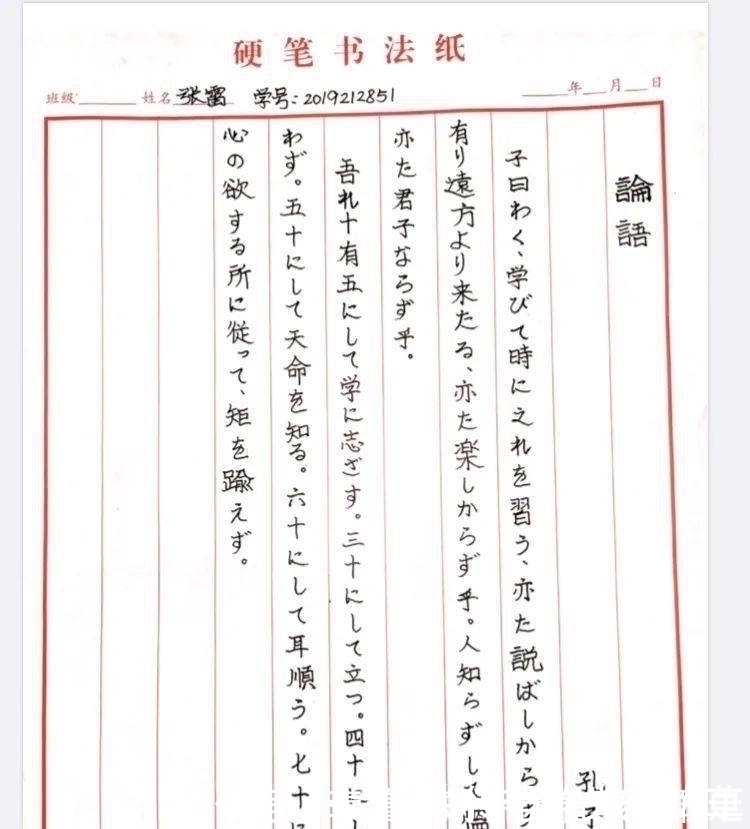 硬笔书法纸
班级 姓名 张雷 学号:2019212851 年 月 日
論語
孔子
子曰わく、学びて時に之れを習う、亦た説ばしから
有り遠方より来たる、亦た楽しからず乎。人知らずして慍
亦た君子ならず乎。
吾れ十有五にして学に志ざす。三十にして立つ。四十にし
わず。五十にして天命を知る。六十にして耳順う。七十に
心の欲する所に従って、矩を踰えず。